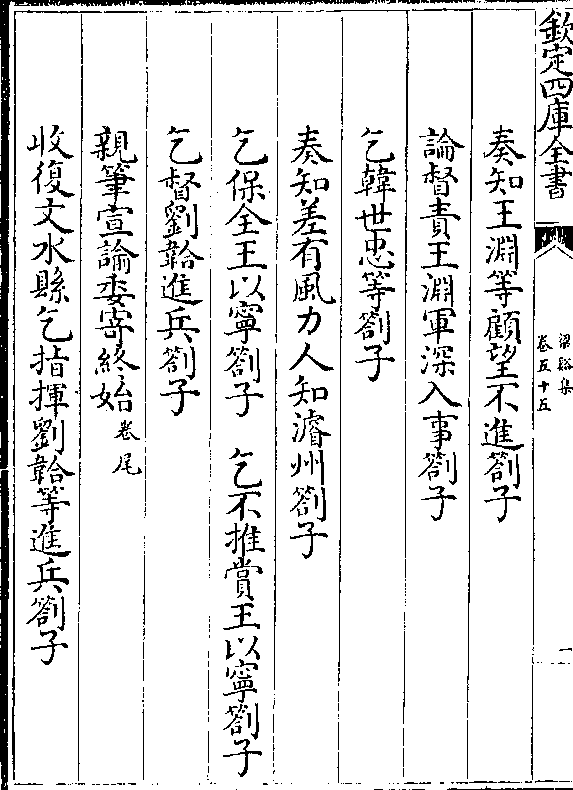 欽定四庫全書
梁谿集
卷五十五
一
奏知王淵等顧望不進劄子
論督責王淵軍深入事劄子
乞韓世忠等劄子
奏知差有風力人知濬州劄子
乞保全王以寧劄子　乞不推賞王以寧劄子
乞督劉韐進兵劄子
親筆宣諭委寄終始卷尾
收復文水縣乞指揮劉韐等進兵劄子